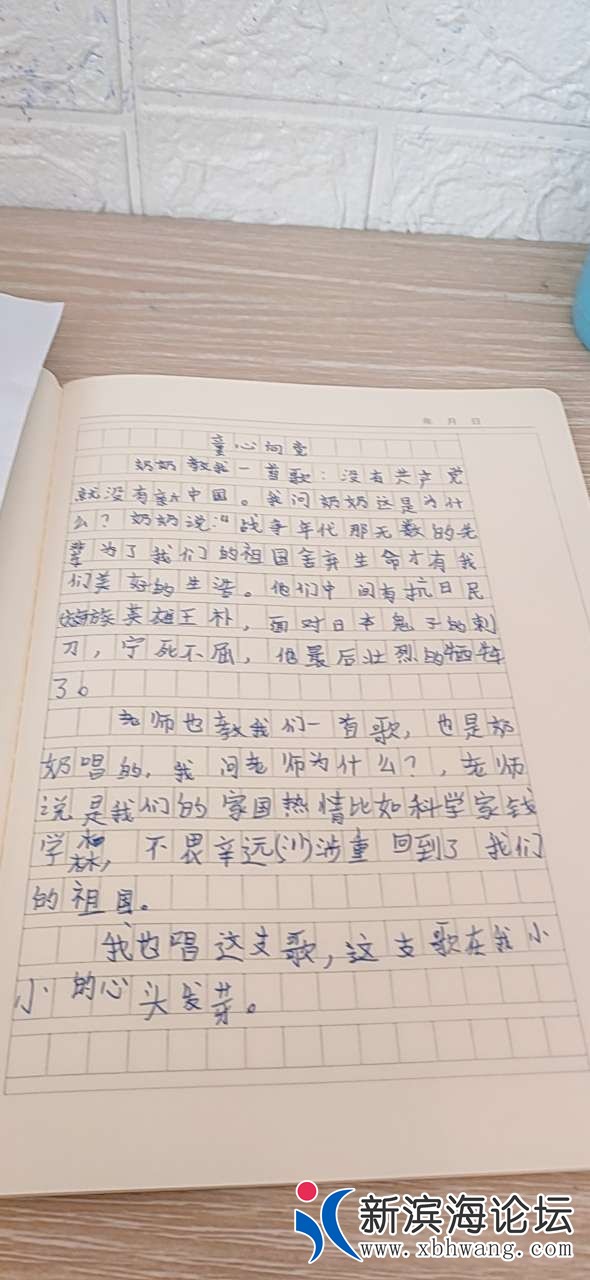 年 月 日
童心向党
奶奶教我一首歌：没有共产党
就没有新中国。我问奶奶这是为什
么？奶奶说："战争年代那无数的先
辈为了我们的祖国舍弃生命才有我
们美好的生活。他们中间有抗日民
族英雄王朴，面对日本鬼子的刺
刀，宁死不屈，他最后壮烈的牺牲
了。
老师也教我们一首歌，也是奶
奶唱的，我问老师为什么？，老师
说是我们的家国热情比如科学家钱
学森，不畏辛远涉重回到了我们
的祖国。
我也唱这支歌，这支歌在我小
小的心头发芽。
新滨海论坛
www.xbhwang.com